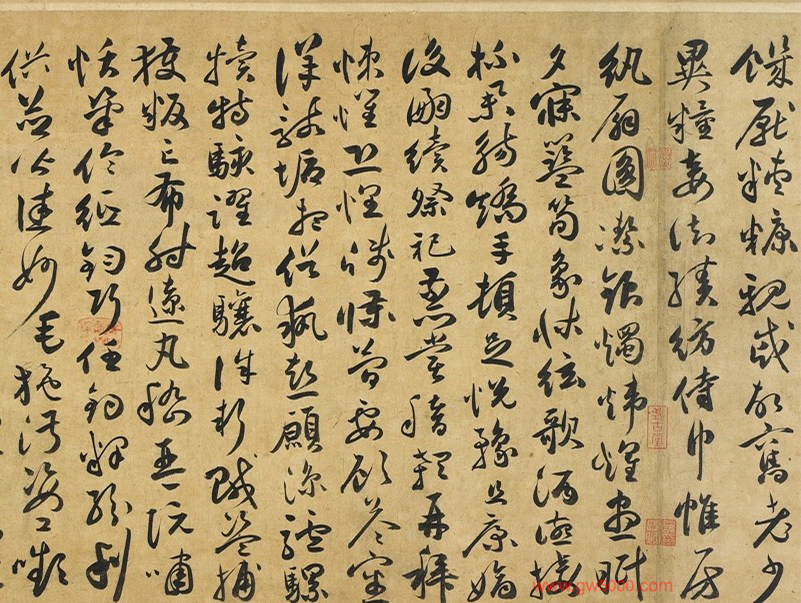 饑厭糟糠親戚故舊老少
異糧妾御績紡侍巾帷房
紈扇圓潔銀燭煒煌晝眠
夕寐籃筍象床絃歌酒讌接
杯舉觴矯手頓足悅豫且康嫡
後嗣續祭祀蒸嘗稽顙再拜
悚懼恐惶牋牒簡要顧答審
詳骸垢想浴執熱願涼驢騾
犢特駭躍超驤誅斬賊盜捕
獲叛亡布射遼丸嵇琴阮嘯
恬筆倫紙鈞巧任釣釋紛利
俗並皆佳妙毛施淑姿工顰
www.gw5000.com